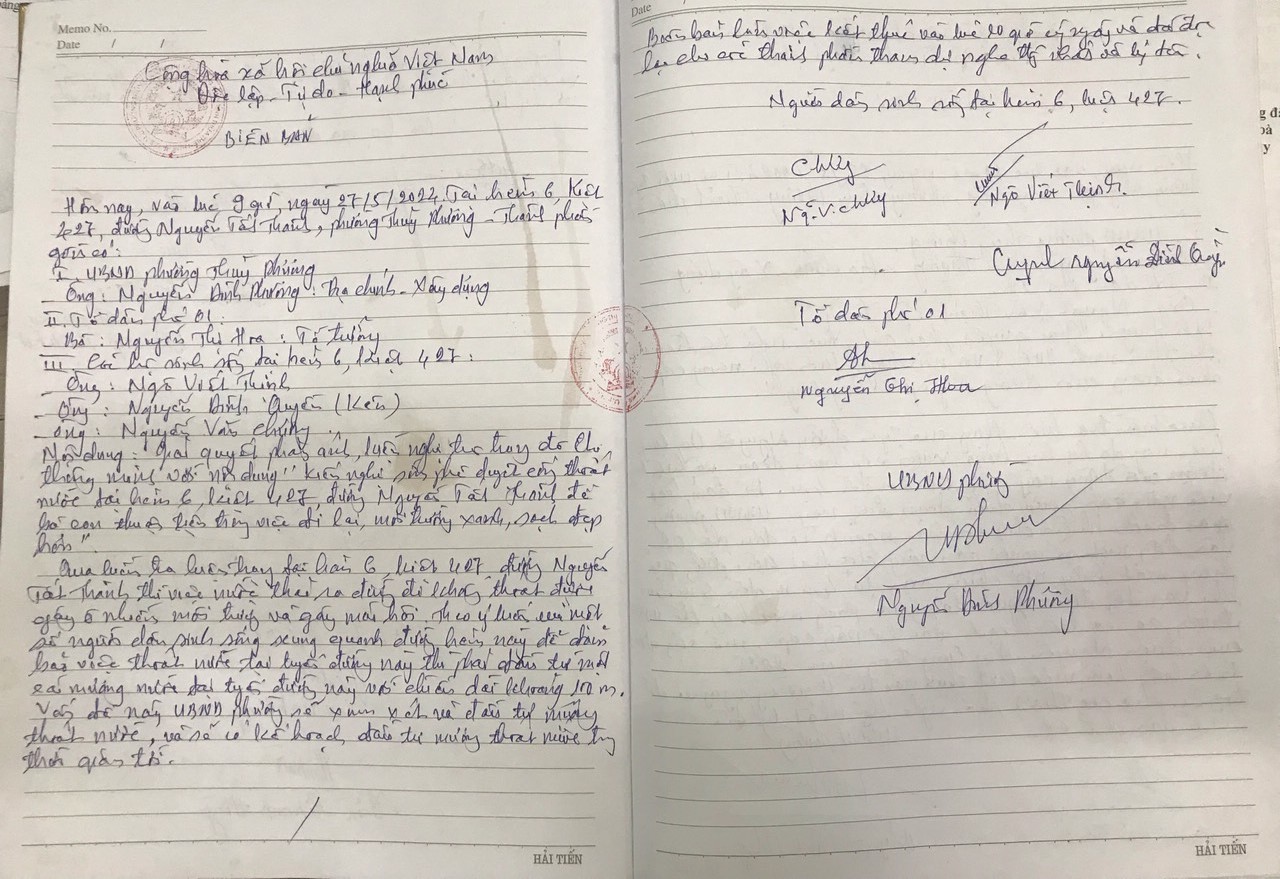 Memo No.
Date / /
Cộng hoà xã hội chủ nghĩa Việt Nam
Độc lập - Tự do - Hạnh phúc
BIÊN BẢN
Hôm nay, vào lúc 9 giờ, ngày 27/5/2024. Tại hẻm 6, Kiệt
427, đường Nguyễn Tất Thành, phường Thuỷ Phương - Thành phần
gồm có:
I. UBND phường Thuỷ Phương
- Ông: Nguyễn Đình Phương: Địa chính - Xây dựng
II. Tổ dân phố 01:
- Bà: Nguyễn Thị Hoa: Tổ trưởng
III. Các hộ sinh sống tại hẻm 6, kiệt 427:
- Ông: Ngô Viết Thinh
- Ông: Nguyễn Đình Quyền (Kên)
- Ông: Nguyễn Văn Chúng
Nội dung: Giải quyết phản ánh, kiến nghị trên trang đô thị
thông minh với nội dung "Kiến nghị sớm phê duyệt cống thoát
nước tại hẻm 6, kiệt 427 đường Nguyễn Tất Thành để
bà con thuận tiện trong việc đi lại, môi trường xanh, sạch đẹp
hơn".
Qua kiểm tra hiện nay tại hẻm 6, kiệt 427 đường Nguyễn
Tất Thành thì việc nước thải ra đường đi không thoát được
gây ô nhiễm môi trường và gây mùi hôi. Theo ý kiến của một
số người dân sinh sống xung quanh đường hẻm này để đảm
bảo việc thoát nước tại tuyến đường này thì phải đầu tư một
cái mương nước tại tuyến đường này với chiều dài khoảng 100 m.
Vấn đề này UBND phường sẽ xem xét và đầu tư mương
thoát nước, và sẽ có kế hoạch đầu tư mương thoát nước trong
thời gian tới.
HẢI TIẾN
Date
Biên bản làm việc kết thúc vào lúc 10 giờ cùng ngày và đã đọc
lại cho các thành phần tham dự nghe thống nhất và ký tên.
Người dân sinh sống tại hẻm 6, kiệt 427.
Ng. V. Chúng
Ngô Viết Thinh
Nguyễn Đình Quyền
Tổ dân phố 01
Nguyễn Thị Hoa
UBND phường
Nguyễn Đình Phương
HẢI TIẾN